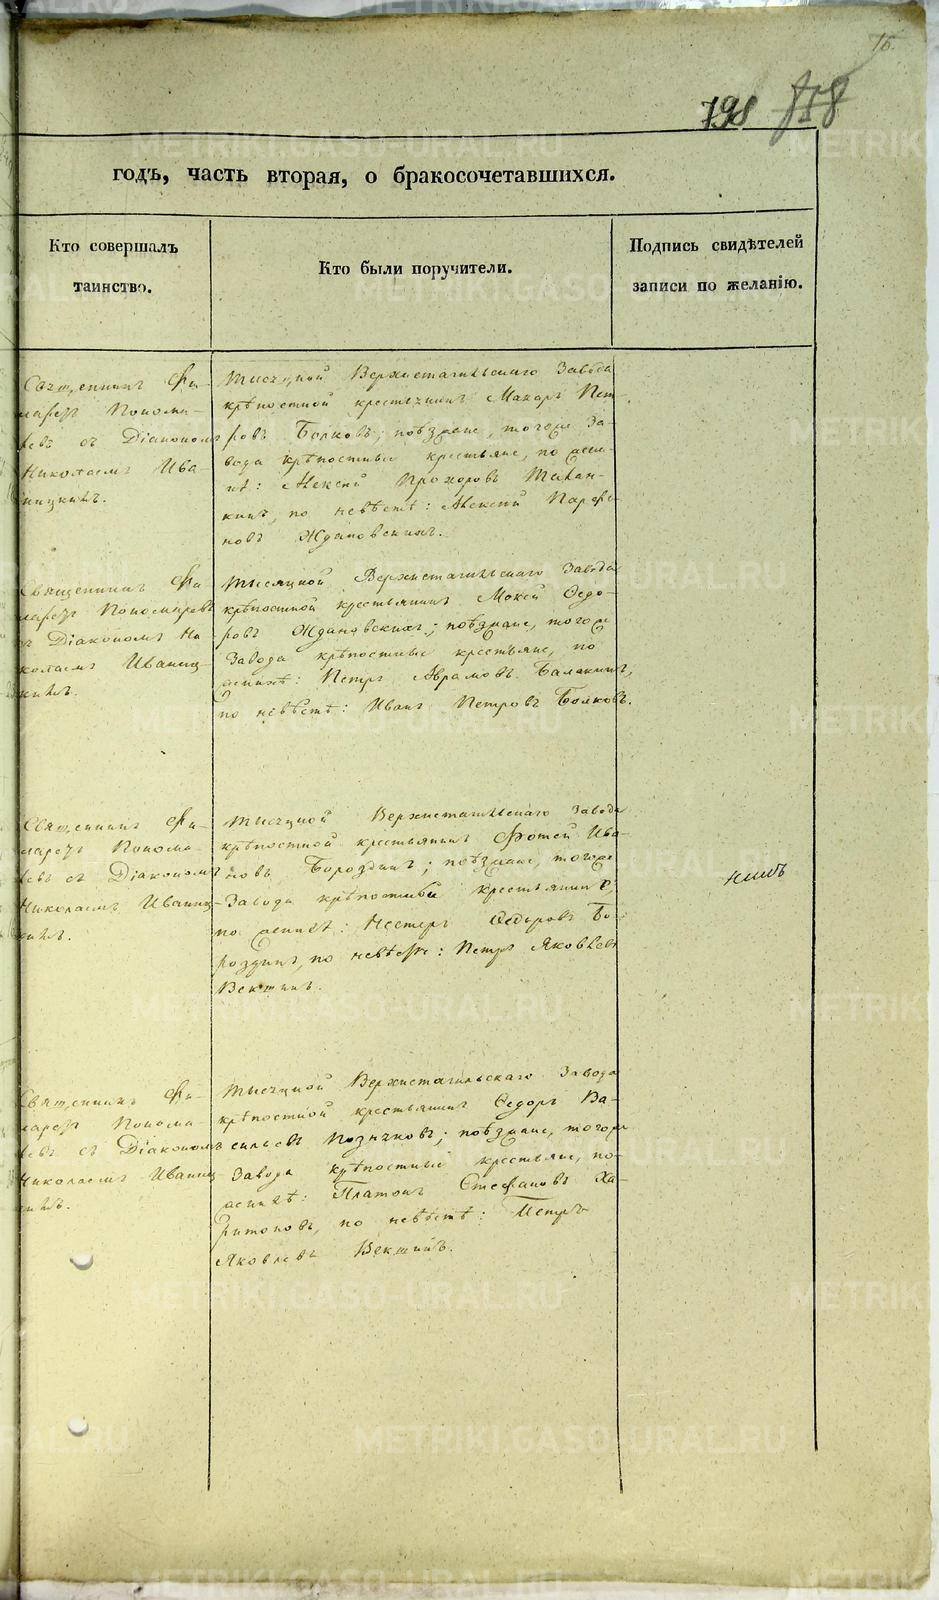 76.
798 818
годъ, часть вторая, о бракосочетавшихся.
Кто совершалъ
таинство.
Кто были поручители.
Подпись свидѣтелей
записи по желанію.
Священникъ Фи-
ларетъ Понома-
ревъ съ Діакономъ
Николаемъ Ива-
ницкимъ.
Тысяцкой Верхнетагильскаго Завода
крѣпостной крестьянинъ Макаръ Пет-
ровъ Волковъ; поѣзжане, тогоже За-
вода крѣпостные крестьяне, по жени-
хѣ: Алексѣй Прохоровъ
по невѣстѣ: Алексѣй Парфе-
новъ Ждановскихъ.
Священникъ Фи-
ларетъ Пономаревъ
съ Діакономъ Ни-
колаемъ Иваниц-
кимъ.
Тысяцкой Верхнетагильскаго Завода
крѣпостной крестьянинъ Мокей Ѳедо-
ровъ Ждановскихъ; поѣзжане, тогоже
Завода крѣпостные крестьяне, по
женихѣ: Петръ Аврамовъ Балакинъ,
по невѣстѣ: Иванъ Петровъ Волковъ.
Священникъ Фи-
ларетъ Понома-
ревъ съ Діакономъ
Николаемъ Иваниц-
кимъ.
Тысяцкой Верхнетагильскаго Завода
крѣпостной крестьянинъ Фотей Ива-
новъ Бороздинъ; поѣзжане, тогоже
Завода крѣпостные крестьянине,
по женихѣ: Нестеръ Ѳедоровъ Бо-
роздинъ, по невѣстѣ: Петръ Яковлевъ
Векшинъ.
нѣтъ
Священникъ Фи-
ларетъ Понома-
ревъ съ Діакономъ
Николаемъ Иваниц-
кимъ.
Тысяцкой Верхнетагильскаго Завода
крѣпостной крестьянинъ Ѳедоръ Ва-
сильевъ Позняковъ; поѣзжане, тогоже
Завода крѣпостные крестьяне, по
женихѣ: Платонъ Стефановъ Ха-
ритоновъ, по невѣстѣ: Петръ
Яковлевъ Векшинъ.
METRIKI.GASO-URAL.RU